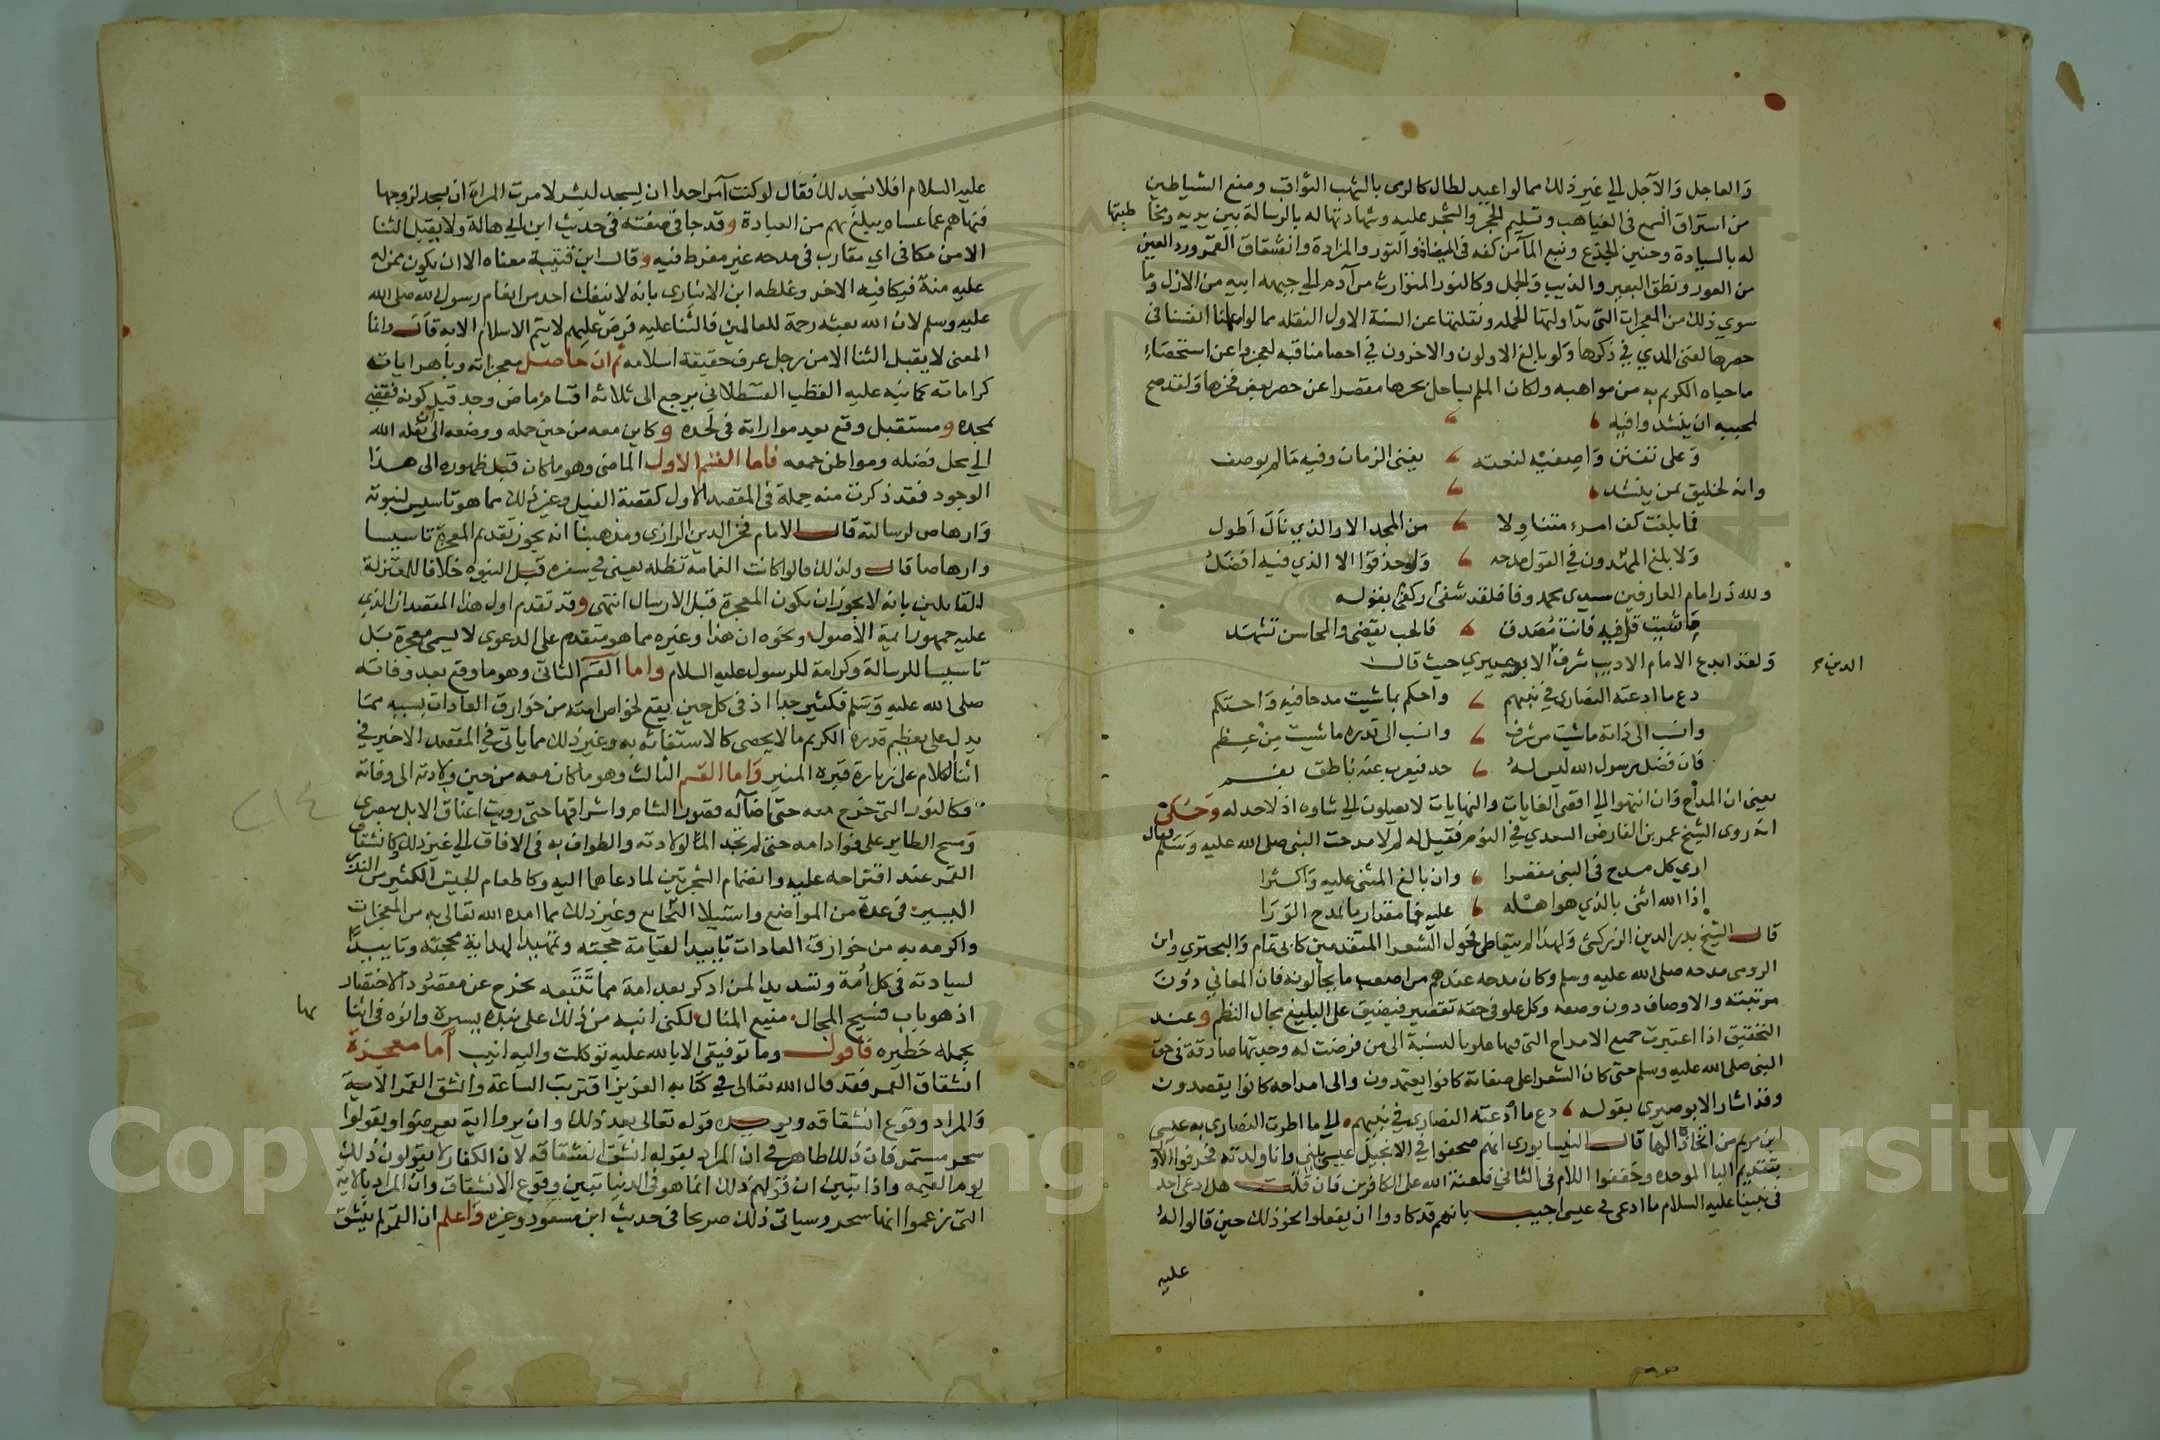 والعاجل والآجل إلى غير ذلك مما لو أعيد لطال كالرمي بالشهب الثواقب ومنع الشياطين
من استراق السمع في الغياهب وتسليم الحجر والشجر عليه وشهادتها له بالرسالة بين يديه ومخاطبتها
له بالسيادة وحنين الجذع ونبع الماء من كفه في الميضاة والتور والمزادة وانشقاق القمر ورد العين
من العور ونطق البعير والذيب والجمل وكالنور المتوارث من آدم إلى جبهة ابيه من الازل وما
سوى ذلك من المعجزات التي تداولتها الحملة ونقلتها عن السنة الاول النقله مما لو اعملنا انفسنا في
حصرها لفنى المدى في ذكرها ولو بالغ الاولون والاخرون في احصا مناقبه لعجزوا عن استقصاء
ما حباه الكريم به من مواهبه ولكان الملم بساحل بحرها مقصرا عن حصر بعض فخرها ولقد صح
لمحبيه ان ينشدوا فيه
وعلى تفنن واصفيه لنعته يفنى الزمان وفيه ما لم يوصف
وانه لخليق بمن ينشد
فما بلغت كف امرء متناولا من المجد الا والذي نال اطول
ولا بلغ المهدون في القول مدحه ولو حذقوا الا الذي فيه افضل
ولله در امام العارفين سيدي محمد وفا فلقد شفى وكفى بقوله
ما شئت قل فيه فانت مصدق فالحب يقضي والمحاسن تشهد
ولقد ابدع الامام الاديب شرف الدين الابوصيري حيث قال
دع ما ادعته النصارى في نبيهم واحكم بما شيت مدحا فيه واحتكم
وانسب الى ذاته ما شيت من شرف وانسب الى قدره ما شيت من عظم
فان فضل رسول الله ليس له حد فيعرب عنه ناطق بفم
يعني ان المداح وان انتهوا الى اقصى الغايات والنهايات لا يصلون الى شاوه اذ لا حد له وحكى
انه روى الشيخ عمر بن الفارض السعدي في النوم فقيل له لم لا مدحت النبي صلى الله عليه وسلم فقال
ارى كل مدح في النبي مقصرا وان بالغ المثني عليه واكثرا
اذا الله اثنى بالذي هو اهله عليه فما مقدار ما تمدح الورا
قال الشيخ بدر الدين الزركشي ولهذا لم يتعاطى فحول الشعرا المتقدمين كابي تمام والبحتري وابن
الرومي مدحه صلى الله عليه وسلم وكان مدحه عندهم من اصعب ما يحاولونه فان المعاني دون
مرتبته والاوصاف دون وصفه وكل علو في حقه تقصير فيضيق على البليغ مجال النظم وعند
التحقيق اذا اعتبرت جميع الامداح التي فيها غلو بالنسبة الى من فرضت له وجدتها صادقة في حق
النبي صلى الله عليه وسلم حتى كان الشعرا على صفاته كانوا يعتمدون والى امداحه كانوا يقصدون
وقد اشار الابوصيري بقوله دع ما ادعته النصارى في نبيهم الى ما اطرت النصارى به عيسى
ابن مريم من اتخاذه الها قال النيسابوري انهم صحفوا في الانجيل عيسى نبي وانا ولدته فحرفوا الاول
بتقديم البا الموحده وخففوا اللام في الثاني فلعنة الله على الكافرين فان قلت هل ادعى احد
في نبينا عليه السلام ما ادعى في عيسى اجيب بانهم قد كادوا ان يفعلوا نحو ذلك حين قالوا له
عليه
عليه السلام افلا نسجد لك فقال لو كنت آمر احدا ان يسجد لبشر لامرت المراة ان تسجد لزوجها
فنهاهم عما عساه يبلغ بهم من العبادة وقد جا في صفته في حديث ابن ابي هالة ولا يقبل الثنا
الا من مكافي اي مقارب في مدحه غير مفرط فيه وقال ابن قتيبة معناه الا ان يكون ممن له
عليه منة فيكافيه الاخر وغلطه ابن الانباري بانه لا ينفك احد من انعام رسول الله صلى الله
عليه وسلم لان الله بعثه رحمة للعالمين فالثنا عليه فرض عليهم لا يتم الاسلام الا به قال وانما
المعنى لا يقبل الثنا الا من رجل عرف حقيقة اسلامه ثم ان حاصل معجزاته وباهر ايات
كراماته كما نبه عليه القطب القسطلاني يرجع الى ثلاثة اقسام ماض وجد قبل كونه فقضي
بمجده ومستقبل وقع بعد مواراته في لحده وكاين معه من حين حمله ووضعه الى نقله الله
الى محل فضله ومواطن جمعه فاما القسم الاول الماضي وهو ما كان قبل ظهوره الى هذا
الوجود فقد ذكرت منه جملة في المقصد الاول كقصة الفيل وغير ذلك مما هو تاسيس لنبوته
وارهاص لرسالته قال الامام فخر الدين الرازي ومذهبنا انه يجوز تقديم المعجزة تاسيسا
وارهاصا قال ولذلك قالوا كانت الغمامة تظله يعني في سفره قبل النبوه خلافا للمعتزلة
القايلين بانه لا يجوز ان تكون المعجزة قبل الارسال انتهى وقد تقدم اول هذا المقصد ان الذي
عليه جمهور ايمة الاصول ونحوه ان هذا وغيره مما هو متقدم على الدعوى لا يسمى معجزة بل
تاسيسا للرسالة وكرامة للرسول عليه السلام واما القسم الثاني وهو ما وقع بعد وفاته
صلى الله عليه وسلم فكثير جدا اذ في كل حين يقع لخواص امته من خوارق العادات بسببه مما
يدل على تعظيم قدره الكريم ما لا يحصى كالاستغاثه به وغير ذلك مما ياتي في المقصد الاخير في
اثنا الكلام على زيارة قبره المنير واما القسم الثالث وهو ما كان معه من حين ولادته الى وفاته
فكالنور الذي خرج معه حتى اضاء له قصور الشام واسواقها حتى رويت اعناق الابل ببصرى
ومسح الطاير على فواد امه حتى لم تجد الما لولادته والطواف به في الافاق الى غير ذلك وكانشقاق
القمر عند اقتراحه عليه وانضمام الشجرتين لما دعاهما اليه وكاطعام الجيش الكثير من النزر
اليسير في عدة من المواضع واستيلا الجايع وغير ذلك مما امده الله تعالى به من المعجزات
واكرمه به من خوارق العادات تاييدا لقيامة حجته وتمهيدا لهداية محجته وتابيدا
لسيادته في كل امة وتسديدا لمن ادكر بعد امة مما تتبعه يخرج عن مقصود الاختصار
اذ هو باب فسيح المجال منيع المنال لكني انبه من ذلك على نبذه يسيرة وانوه في اثنا
بجمله خطيره فاقول وما توفيقي الا بالله عليه توكلت واليه انيب اما معجزة
انشقاق القمر فقد قال الله تعالى في كتابه العزيز اقتربت الساعة وانشق القمر الاية
والمراد وقوع انشقاقه ويويده قوله تعالى بعد ذلك وان يروا اية يعرضوا ويقولوا
سحر مستمر فان ذلك ظاهر في ان المراد بقوله انشق انشقاقه لان الكفار لا يقولون ذلك
يوم القيمه واذا تبين ان قولهم ذلك انما هو في الدنيا تبين وقوع الانشقاق وان المراد بالاية
التي زعموا انها سحر وسياتي ذلك صريحا في حديث ابن مسعود وغيره واعلم ان القمر لم ينشق
Copyright © King Saud University